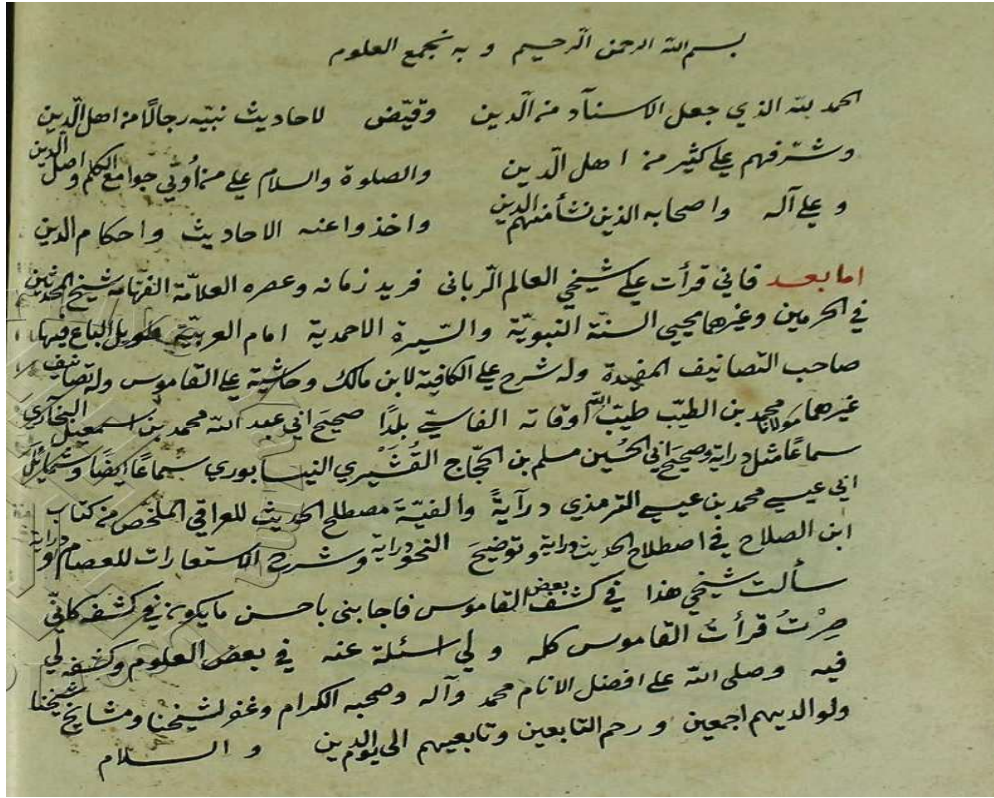 بسم الله الرحمن الرحيم و به نجمع العلوم
الحمد لله الذي جعل الاسناد من الدين وقيّض لاحاديث نبيّه رجالًا من اهل الدين
وشرّفهم على كثير من اهل الدين والصلوة والسلام على من أوتي جوامع الكلم واصل الدين
و على آله واصحابه الذين نشأ منهم الدين واخذوا عنه الاحاديث واحكام الدين
اما بعد فاني قرأت على شيخي العالم الرباني فريد زمانه وعصره العلامّة الفهّامة شيخ المحدثين
في الحرمين وغيرهما محيى السنة النبويّة والسّيرة الاحمدية امام العربيّة طويل الباع فيها
صاحب التصانيف المفيدة وله شرح على الكافية لابن مالك وحاشية على القاموس وله تصانيف
غيرهما مولانا محمد بن الطيّب طيّب الله اوقاته الفاسيّ بلدًا صحيح ابي عبد الله محمد بن اسمعيل البخاري
سماعًا مثل دراية وصحيح ابي الحُسين مسلم بن الحجّاج القُشَيْري النيسابوري سماعًا ايضًا وشمائل
ابي عيسى محمد بن عيسى الترمذي درآيةً وألفيّة مصطلح الحديث للعراقي الملخص من كتاب
ابن الصلاح في اصطلاح الحديث دراية وتوضيح النحو دراية وشرح الاستعارات للعصام دراية و
سألت شيخي هذا في كشف بعض القاموس فاجابنى باحسن ما يكون في كشفه كاني
صِرْتُ قرأتُ القاموس كله و لي اسئلة عنه في بعض العلوم وكشفه لي
فيه وصلى الله على افضل الانام محمد وآله وصحبه الكرام وغفر لشيخنا ومشايخ شيخنا
ولوالديهم اجمعين و رحم التابعين وتابعيهم الى يوم الدين و السلام